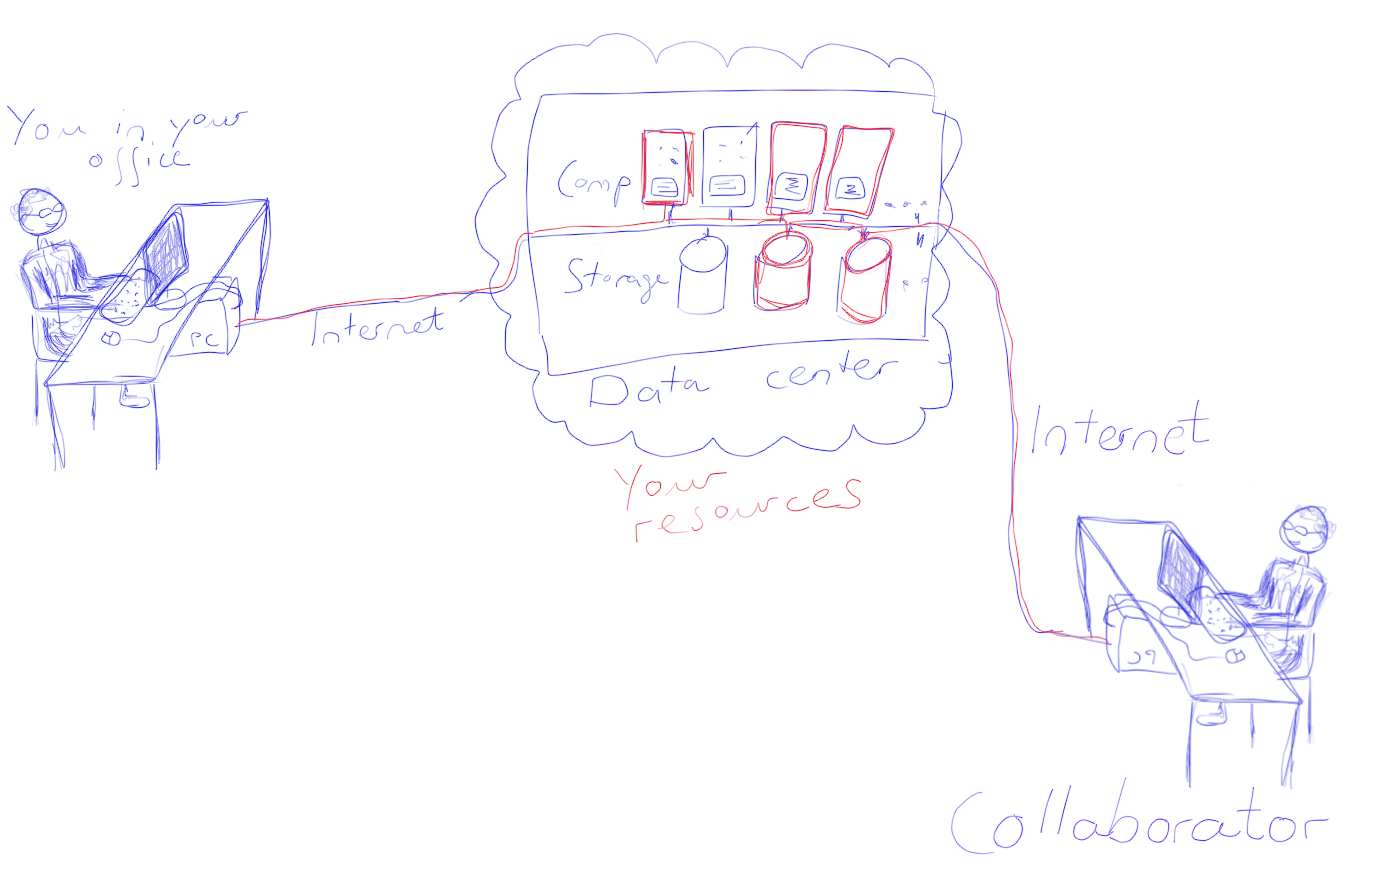 You in your
office
PC
Internet
Comp
Storage
Data center
Your
resources
Internet
PC
Collaborator